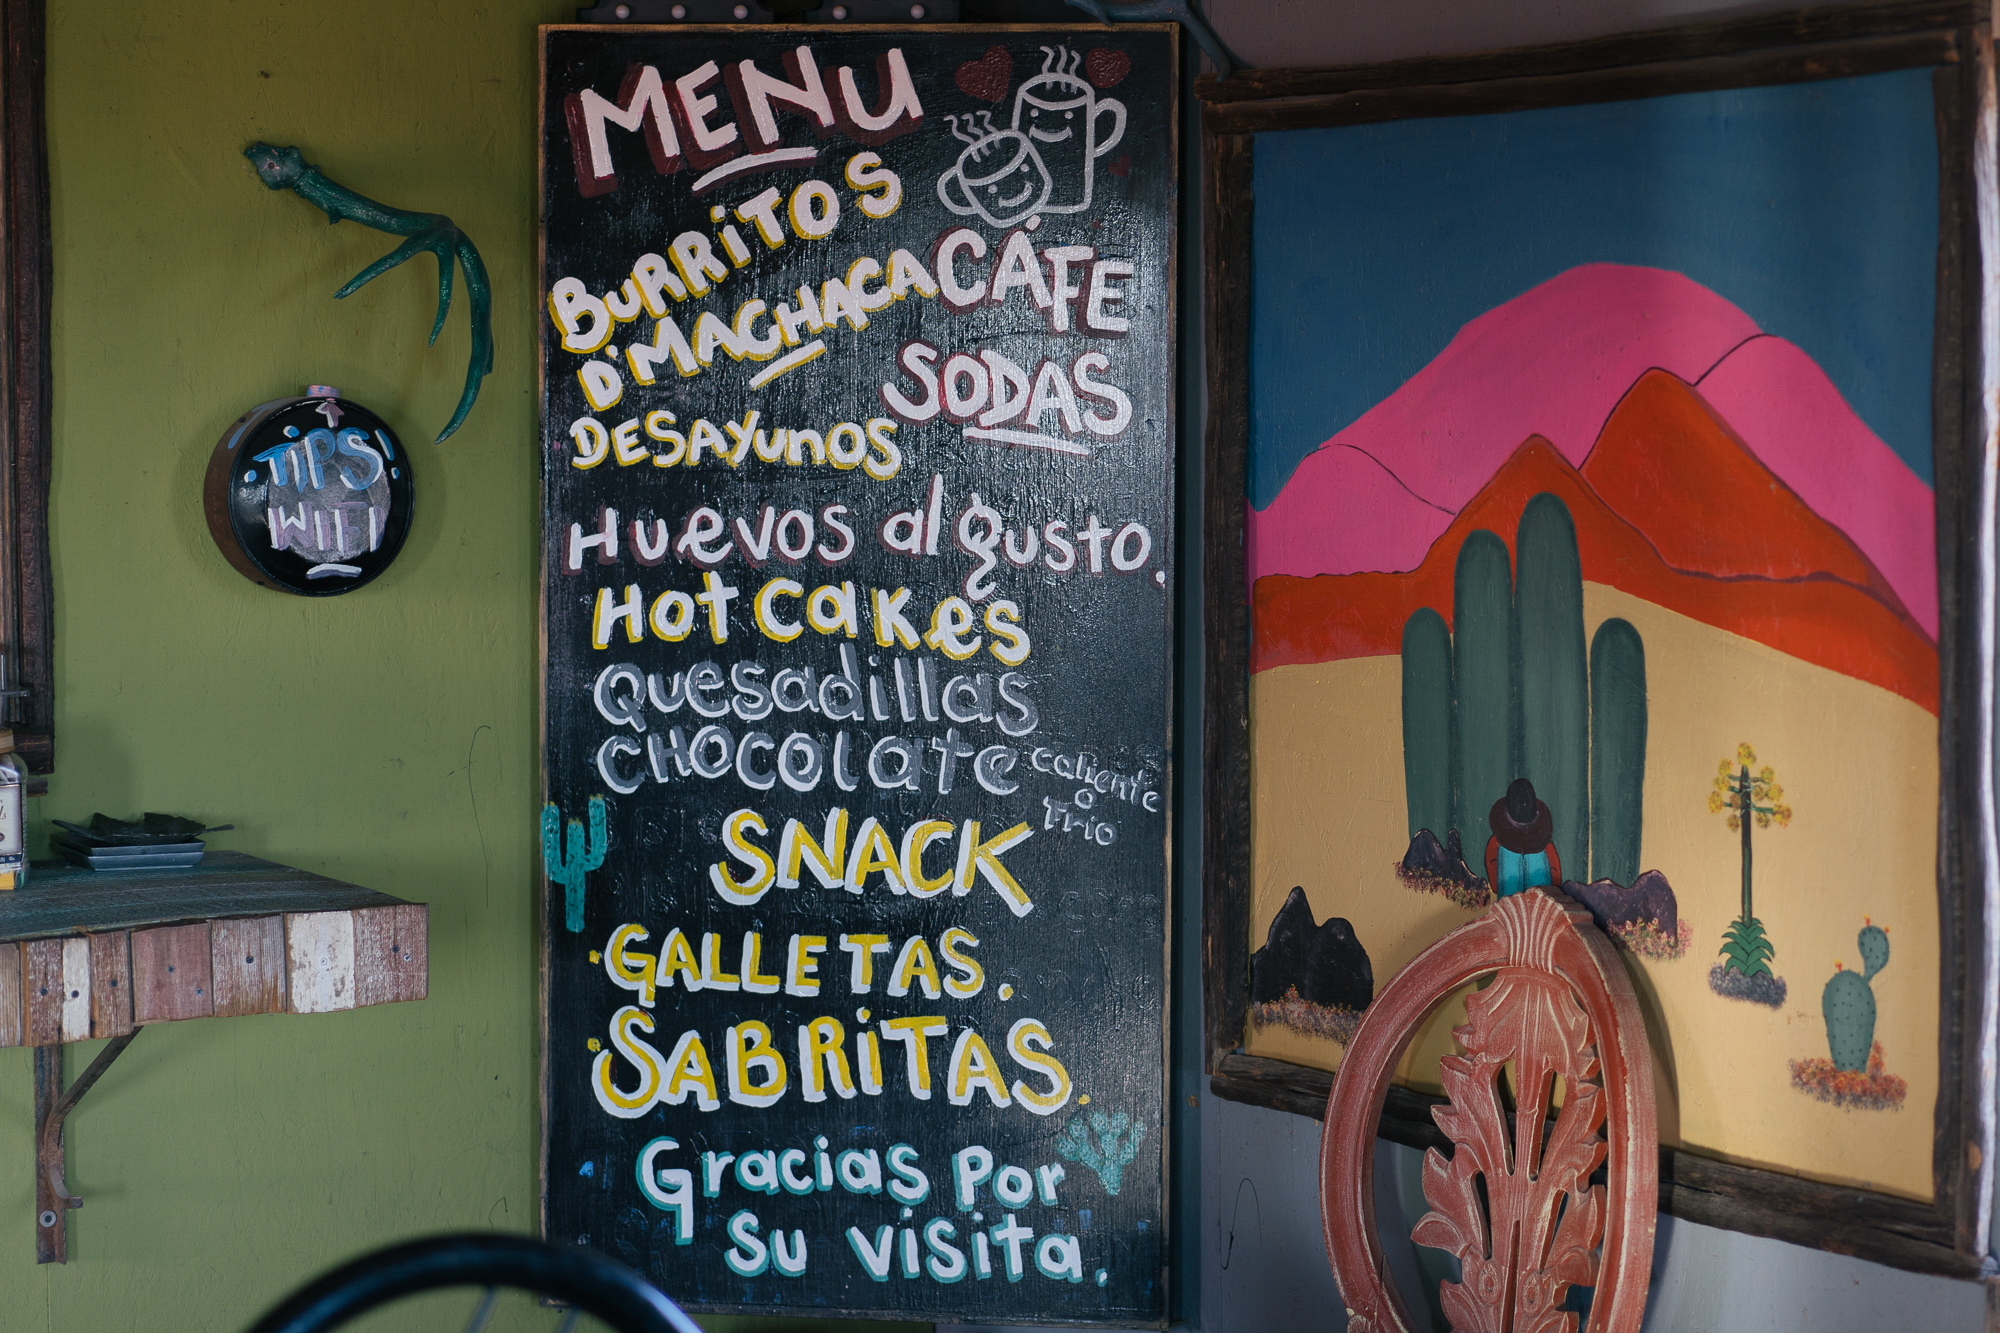 MENU
BURRiTOS
D'MACHACA
DESAYunOS
CÁFE
SODAS
Huevos al gusto.
HotCakes
Quesadillas
CHOCOLATE caliente
o
Frio
SNACK
·GALLETAS.
·SABRiTAS.
Gracias Por
su visita.
·TiPS!
WIFI